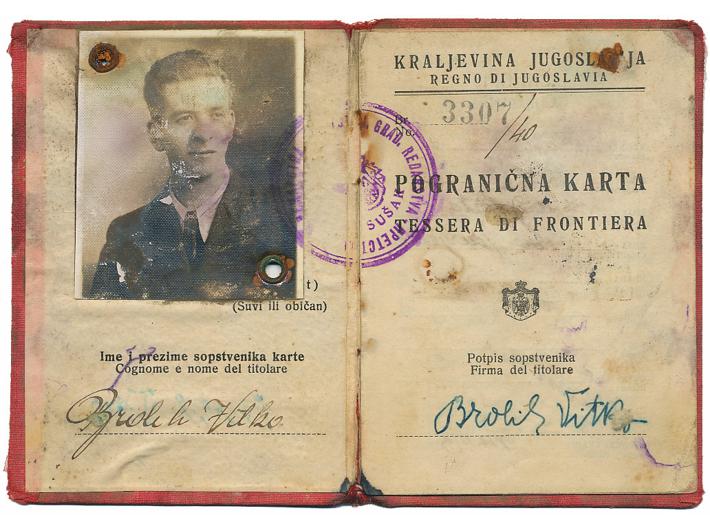 t)
(Suvi ili običan)
Ime i prezime sopstvenika karte
Cognome e nome del titolare
KRALJEVINA JUGOSLA JA
REGNO DI JUGOSLAVIA
Br.
No. 3307/40
GRAD. REDARSTVA
SUŠAK
POGRANIČNA KARTA
TESSERA DI FRONTIERA
Potpis sopstvenika
Firma del titolare